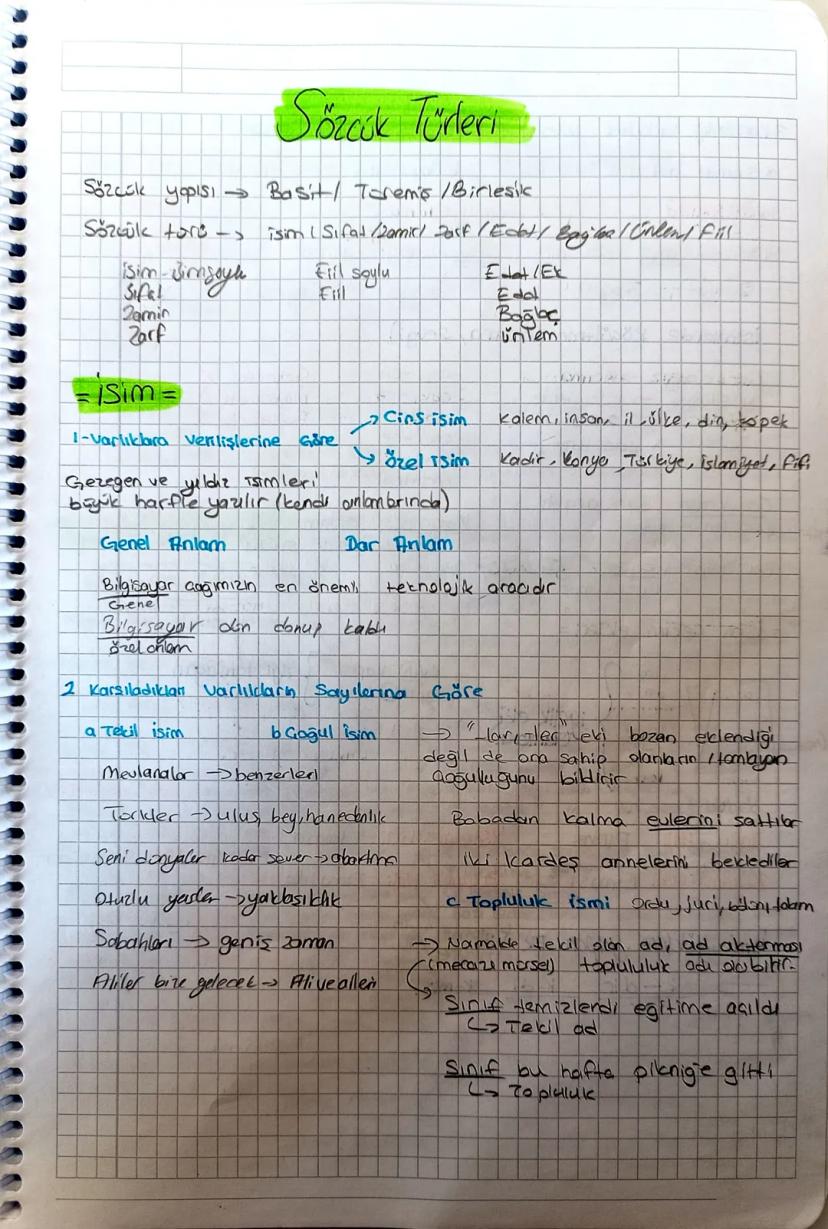 Sözcük Türleri
Sözcük yapısı → Basit / Türemiş / Birleşik
Sözcük türü → isim / Sıfat / zamir / zarf / Edat / Bağlaç / Ünlem / Fiil
isim - isimsoylu Fiil soylu Edat / Ek
Sıfat Fiil Edat
Zamir Bağlaç
Zarf ünlem
= İsim =
1-Varlıklara Verilişlerine Göre
→ Cins isim kalem, insan, il, ülke, din, köpek
↘ özel isim Kadir, Konya, Türkiye, islamiyet, Fifi
Gezegen ve yıldız isimleri
büyük harfle yazılır (kendi anlamlarında)
Genel Anlam Dar Anlam
Bilgisayar çağımızın en önemli teknolojik aracıdır
Genel
Bilgisayar dün donup kaldı
özel anlam
2 Karşıladıkları Varlıkların Sayılarına Göre
a Tekil isim b Çoğul isim
Mevlanalar → benzerleri
Türkler → ulus, bey, hanedanlık
Seni dünyalar kadar sever → abartma
Otuzlu yaşlar → yaklaşıklık
Sabahları → geniş zaman
Aliler bize gelecek → Ali ve ailesi
→ "-lar, -ler" eki bazan eklendiği
değil de ona sahip olanların / tamlayan
çoğuluğunu bildirir
Babadan kalma evlerini sattılar
iki kardeş annelerini beklediler
c Topluluk ismi Ordu, juri, bölün, takım
→ Normalde tekil olan ad, ad aktarması
(mecazı mürsel) toplululuk adı olabilir.
Sınıf temizlendi eğitime açıldı
↳ Tekil ad
Sınıf bu hafta pikniğe gitti
↳ Topluluk